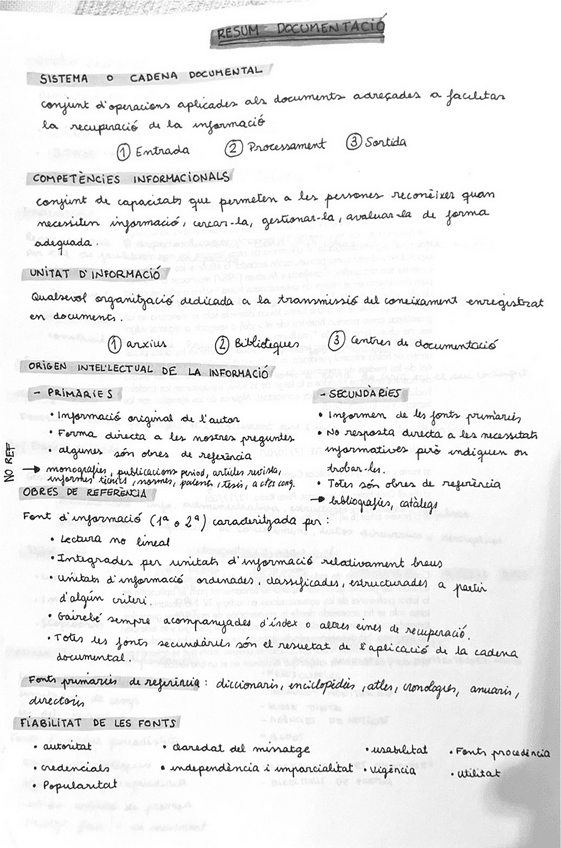 RESUM DOCUMENTACIÓ
SISTEMA O CADENA DOCUMENTAL
conjunt d'operacions aplicades als documents adreçades a facilitar
la recuperació de la informació
① Entrada ② Processament ③ Sortida
COMPETÈNCIES INFORMACIONALS
conjunt de capacitats que permeten a les persones reconèixer quan
necessiten informació, cercar-la, gestionar-la, avaluar-la de forma
adequada.
UNITAT D'INFORMACIÓ
Qualsevol organització dedicada a la transmissió del coneixament enregistrat
en documents.
① arxius ② Biblioteques ③ Centres de documentació
ORÍGEN INTELLECTUAL DE LA INFORMACIÓ
- PRIMÀRIES
• Informació original de l'autor
• Forma directa a les nostres preguntes
• algunes són obres de referència
NO REF
→ monografies, publicacions period, articles revista,
informes tècnics, normes, patents, tesis, actes cong.
- SECUNDÀRIES
• Informen de les fonts primàries
• No resposta directa a les necessitats
informatives però indiquen on
trobar-les.
• Totes són obres de referència
→ bibliografies, catàlegs
OBRES DE REFERÈNCIA
Font d'informació (1ª o 2ª) caracteritzada per:
• Lectura no lineal
• Integrades per unitats d'informació relativament breus
• unitats d'informació ordenades, classificades, estructurades a partir
d'algún criteri.
• Gairebé sempre acompanyades d'índex o altres eines de recuperació.
• Totes les fonts secundàries són el resultat de l'aplicació de la cadena
documental.
Fonts primàries de referència: diccionaris, enciclopèdies, atles, cronologies, anuaris,
directoris
FIABILITAT DE LES FONTS
• autoritat • claredal del missatge • usabilitat • Fonts procedència
• credencials • independència i imparcialitat • vigència • utilitat
• Popularitat